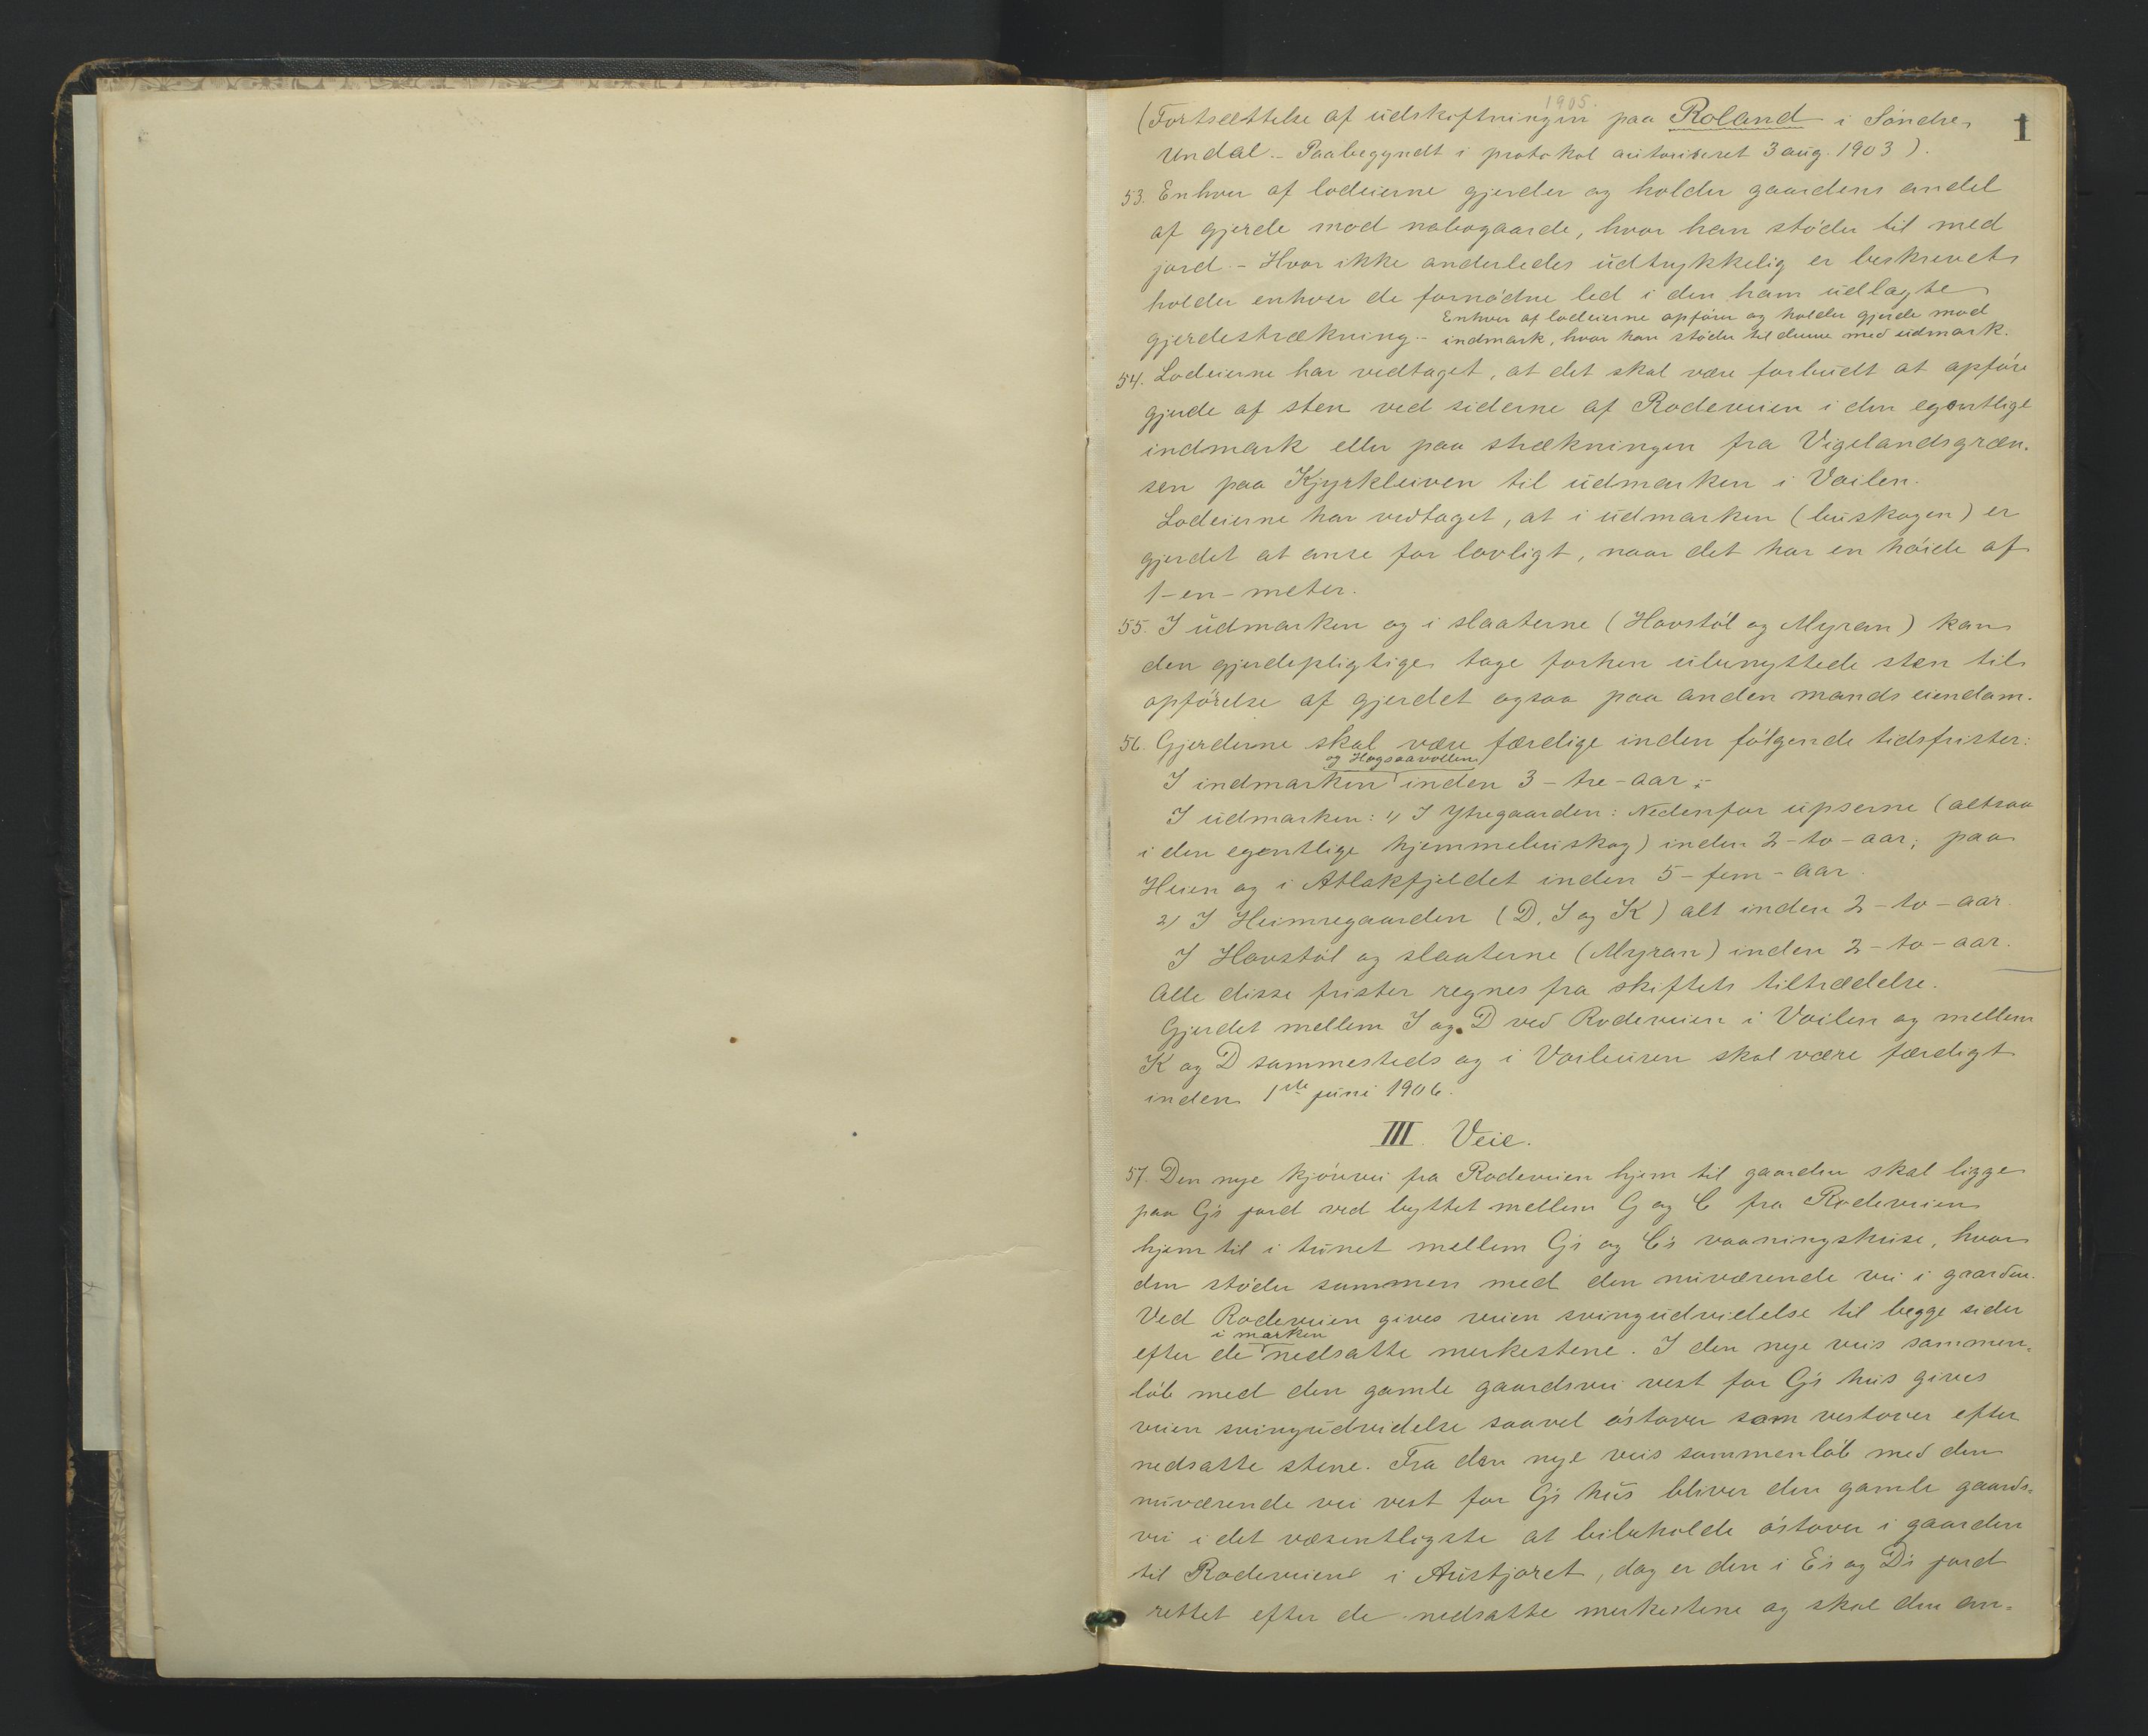 1905.
1
(Fortsættelse af udskiftningen paa Roland i Söndre
Undal.- Paabegyndt i protokol autoriseret 3 aug. 1903).
53. Enhver af lodeierne gjerder og holder gaardens andel
af gjerde mod nabogaarde, hvor han stöder til med
jord.- Hvor ikke anderledes udtrykkelig er beskrevet
holder enhver de fornödne led i den ham udlagte
Enhver af lodeierne opförer og holder gjerde mod
gjerdestrækning.- indmark, hvor han stöder til denne med udmark.
54. Lodeierne har vedtaget, at det skal være forbudt at opföre
gjerde af sten ved siderne af Rodeveien i den egentlige
indmark eller paa strækningen fra Vigelandsgræn-
sen paa Kjyrkleiven til udmarken i Voilen.
Lodeierne har vedtaget, at i udmarken (buskogen) er
gjerdet at anse for lovligt, naar det har en höide af
1-en-meter.
55. I udmarken og i slaaterne (Hovstöl og Myran) kan
den gjerdepligtige tage forhen ubenyttede sten til
opförelse af gjerdet ogsaa paa anden mands eiendom.
56. Gjerderne skal være færdige inden fölgende tidsfrister:
og Hogsaavollen
I indmarken inden 3-tre-aar;-
I udmarken: 1) I Ytregaarden: Nedenfor upserne (altsaa
i den egentlige hjemmebuskog) inden 2-to-aar; paa
Heien og i Atlakfjeldet inden 5-fem-aar.
2) I Heimregaarden (D, I og K) alt inden 2-to-aar.
I Hovstöl og slaaterne (Myran) inden 2-to-aar.
Alle disse frister regnes fra skiftets tiltrædelse.
Gjerdet mellem I og D ved Rodeveien i Voilen og mellem
K og D sammesteds og i skal være færdigt
inden 1ste juni 1906.
III. Veie.
57. Den nye kjörevei fra Rodeveien hjem til gaarden skal ligge
paa G's jord ved byttet mellem G og C fra Rodeveien
hjem til i tunet mellem G's og C's vaaningshuse, hvor
den stöder sammen med den nuværende vei i gaarden.
Ved Rodeveien gives veien svingudvidelse til begge sider
i marken
efter de nedsatte merkestene. I den nye veis sammen-
löb med den gamle gaardsvei vest for G's hus gives
veien svingudvidelse saavel östover som vestover efter
nedsatte stene. Fra den nye veis sammenlöb med den
nuværende vei vest for G's hus bliver den gamle gaards-
vei i det væsentligste at bibeholde östover i gaarden
til Rodeveien i Austjoret, dog er den i E's og D's jord
rettet efter de nedsatte merkestene og skal den an-